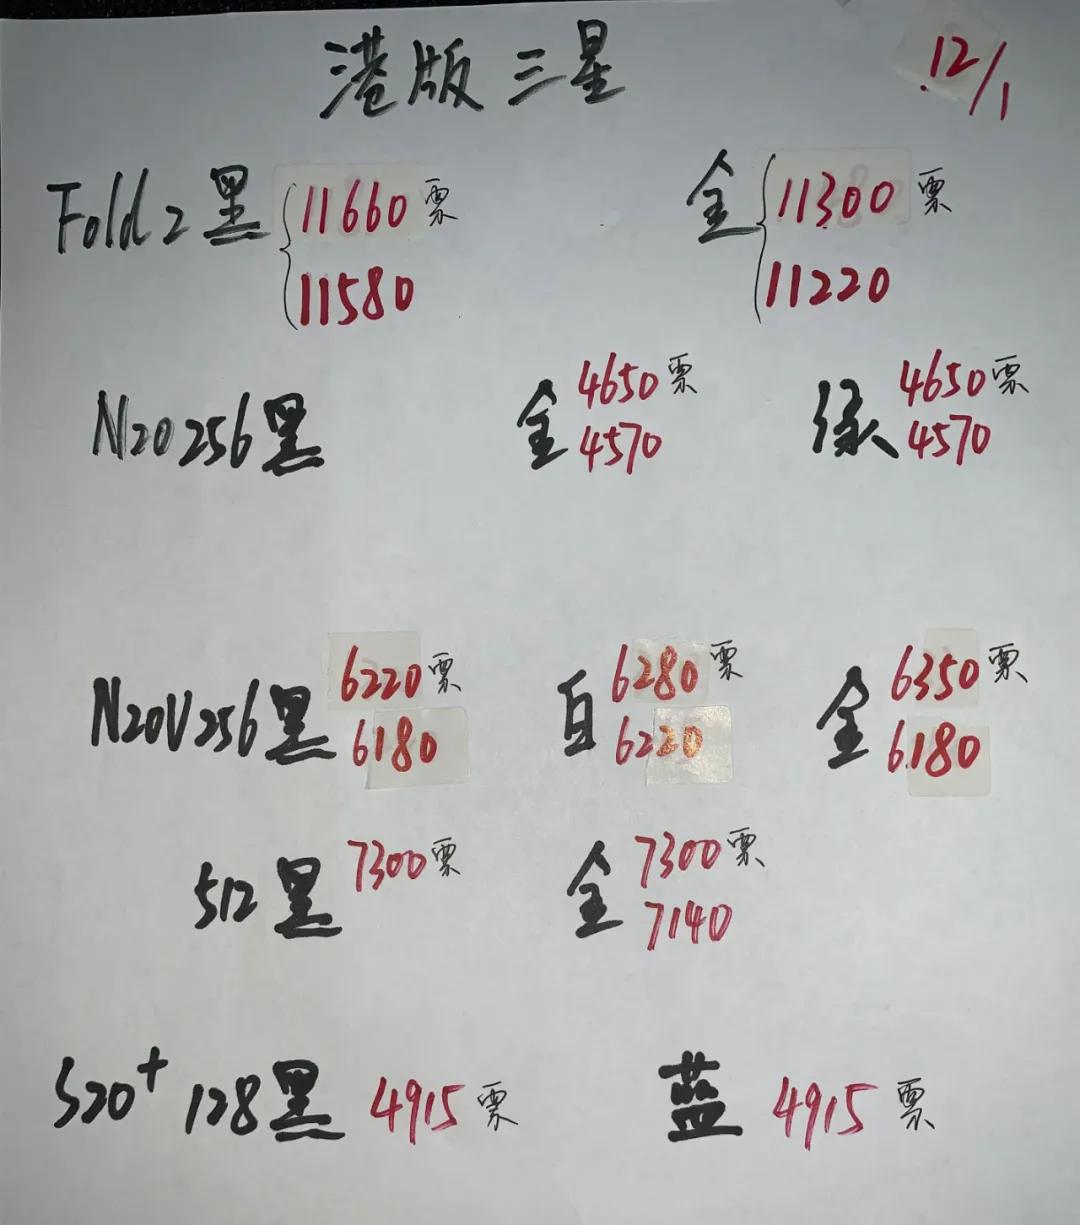 港版三星 12/1
Fold2黑 11660票 金 11300票
11580 11220
N20 256黑 金 4650票 绿 4650票
4570 4570
N20U 256黑 6220票 白 6280票 金 6350票
6180 6220 6180
512黑 7300票 金 7300票
7140
S20+ 128黑 4915票 蓝 4915票